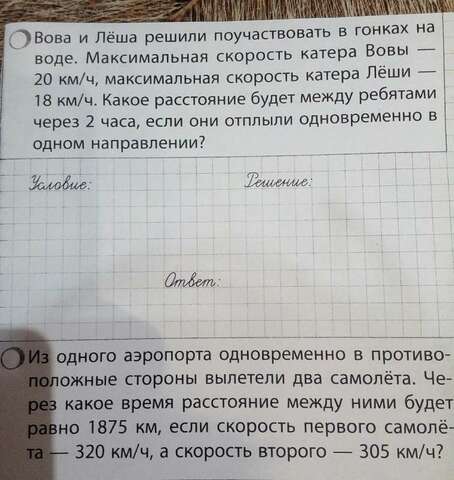 Вова и Лёша решили поучаствовать в гонках на
воде. Максимальная скорость катера Вовы —
20 км/ч, максимальная скорость катера Лёши —
18 км/ч. Какое расстояние будет между ребятами
через 2 часа, если они отплыли одновременно в
одном направлении?
Условие: Решение:
Ответ:
Из одного аэропорта одновременно в противо-
положные стороны вылетели два самолёта. Че-
рез какое время расстояние между ними будет
равно 1875 км, если скорость первого самолё-
та — 320 км/ч, а скорость второго — 305 км/ч?